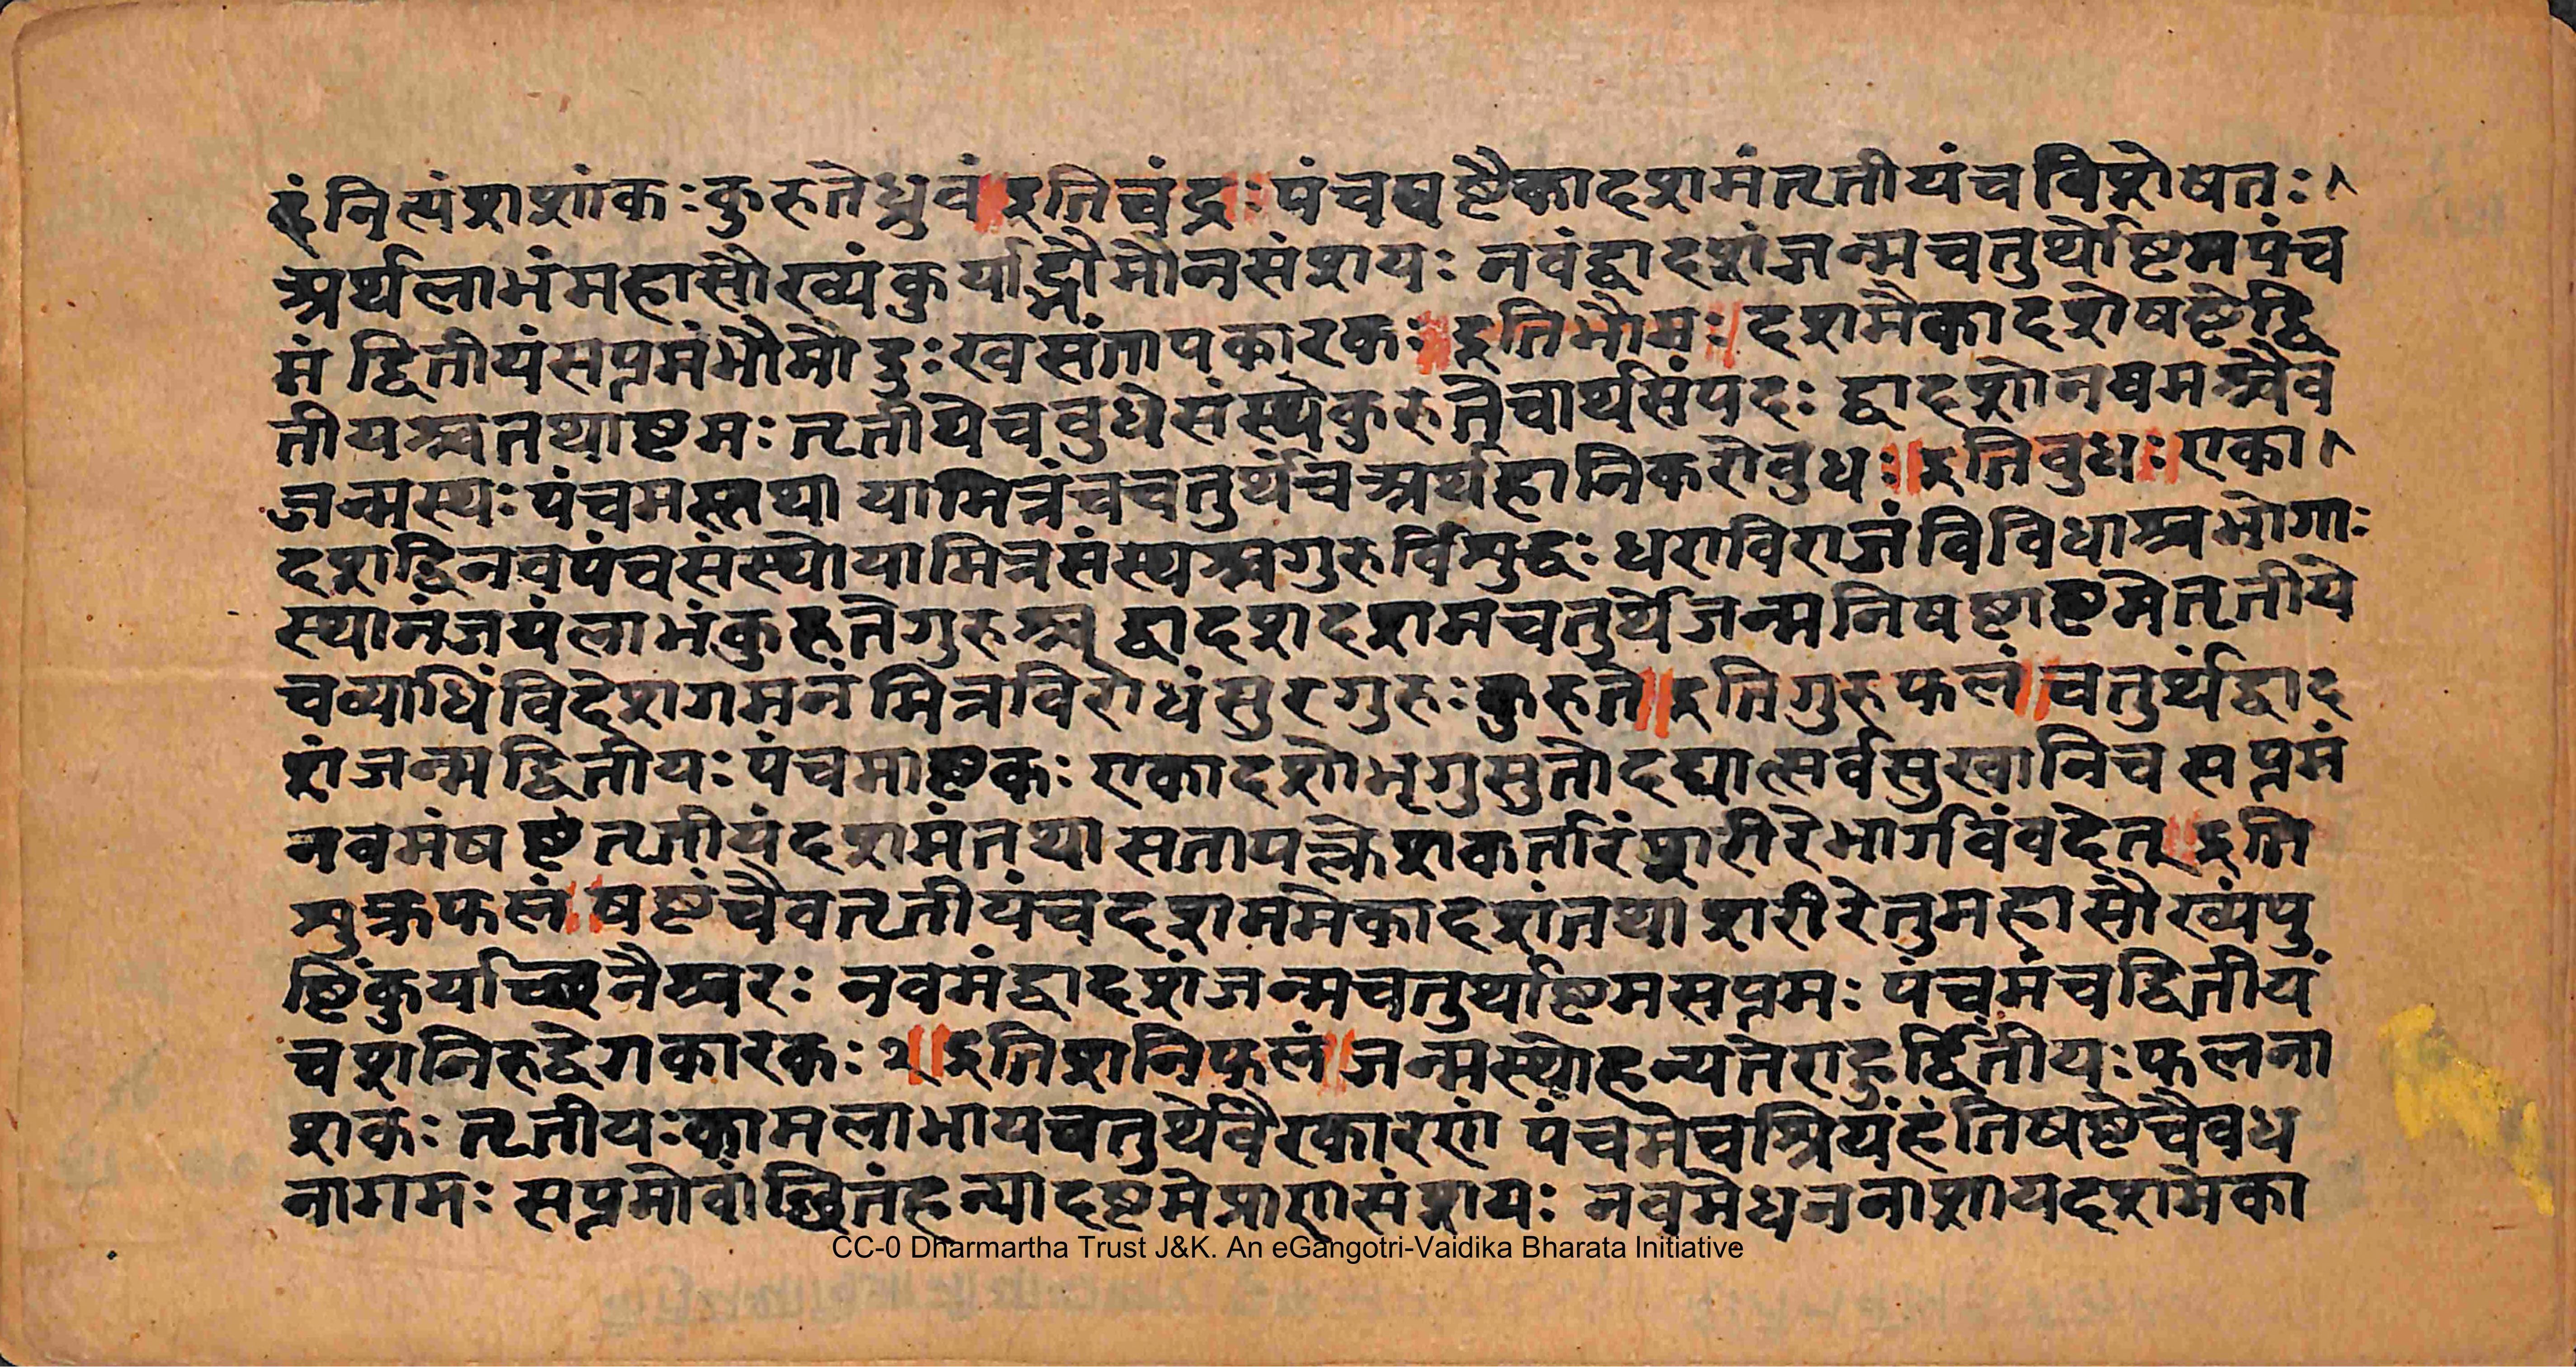 हंनित्यंशशांकःकुरुतेध्रुवं॥इतिचंद्रः॥पंचषष्टैकादशमंतृतीयंचविशेषतः।
अर्थलाभंमहासौख्यंकुर्याद्भौमोनसंशयः नवंद्वादशंजन्मचतुर्थोष्टमपंच
मं द्वितीयंसप्तमंभौमो दुःखसंतापकारकः॥इतिभौमः॥दशमैकादशेषष्टेद्वि
तीयश्चतथाष्टमः तृतीयेचबुधेसंस्थेकुरुतेचार्थसंपदः द्वादशोनषमश्चैव
जन्मस्थः पंचमस्तथा यामित्रंचचतुर्थंचअर्थहानिकरोबुधः॥इतिबुधः॥एका।
दशद्विनवपंचसंस्थोयामित्रसंस्थश्चगुरुर्विशुद्धः धराविराजंविविधाश्चभोगाः
स्थानंजयंलाभंकुरुतेगुरुश्च द्वादशदशमचतुर्थेजन्मनिषष्टाष्टमेतृतीये
चव्याधिंविदेशगमनंमित्रविरोधंसुरगुरुःकुरुते॥इतिगुरुफलं॥चतुर्थंद्वाद
शंजन्मद्वितीयः पंचमाष्टकः एकादशोभृगुसुतोदद्यात्सर्वसुखानिच सप्तमं
नवमंषष्टंतृतीयंदशमंतथा सतापल्केशकर्तारंशरीरेभार्गवंवदेत्॥इति
शुक्रफलं॥षष्टंचैवतृतीयंचदशममेकादशंतथाशरीरेतुमहासौख्यंपु
ष्टिंकुर्याच्छनैश्चरः नवमंद्वादशंजन्मचतुर्थाष्टमसप्तमः पंचमंचद्वितीयं
चशनिरुद्वेगकारकः १॥इतिशनिफलं॥जन्मस्थोहन्यतेराहुर्द्वितीयःफलना
शकः तृतीयःकामलाभायचतुर्थेवैरकारणं पंचमेचश्रियंहंतिषष्टेचैवध
नागमः सप्तमोवांछितंहन्यादष्टमेप्राणसंशयः नवमेधननाशायदशमेका
CC-0 Dharmartha Trust J&K. An eGangotri-Vaidika Bharata Initiative